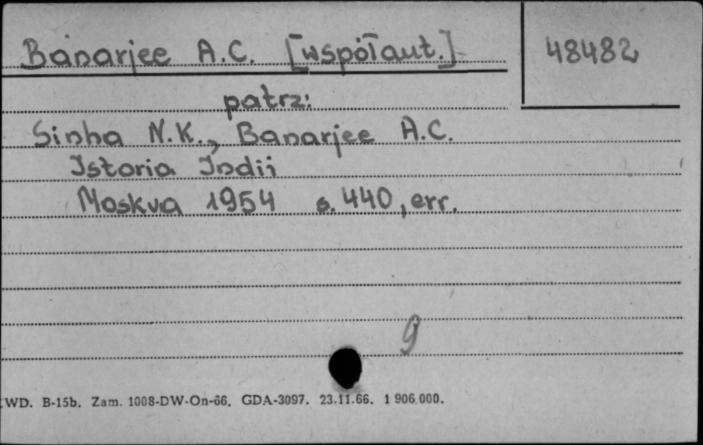 Banarjee A.C. [współaut.]
48482
patrz:
Sinha N.K., Banarjee A.C.
Istoria Indii
Moskva 1954 s. 440, err.
9
WD. B-15b. Zam. 1008-DW-On-66. GDA-3097. 23.11.66. 1 906 000.